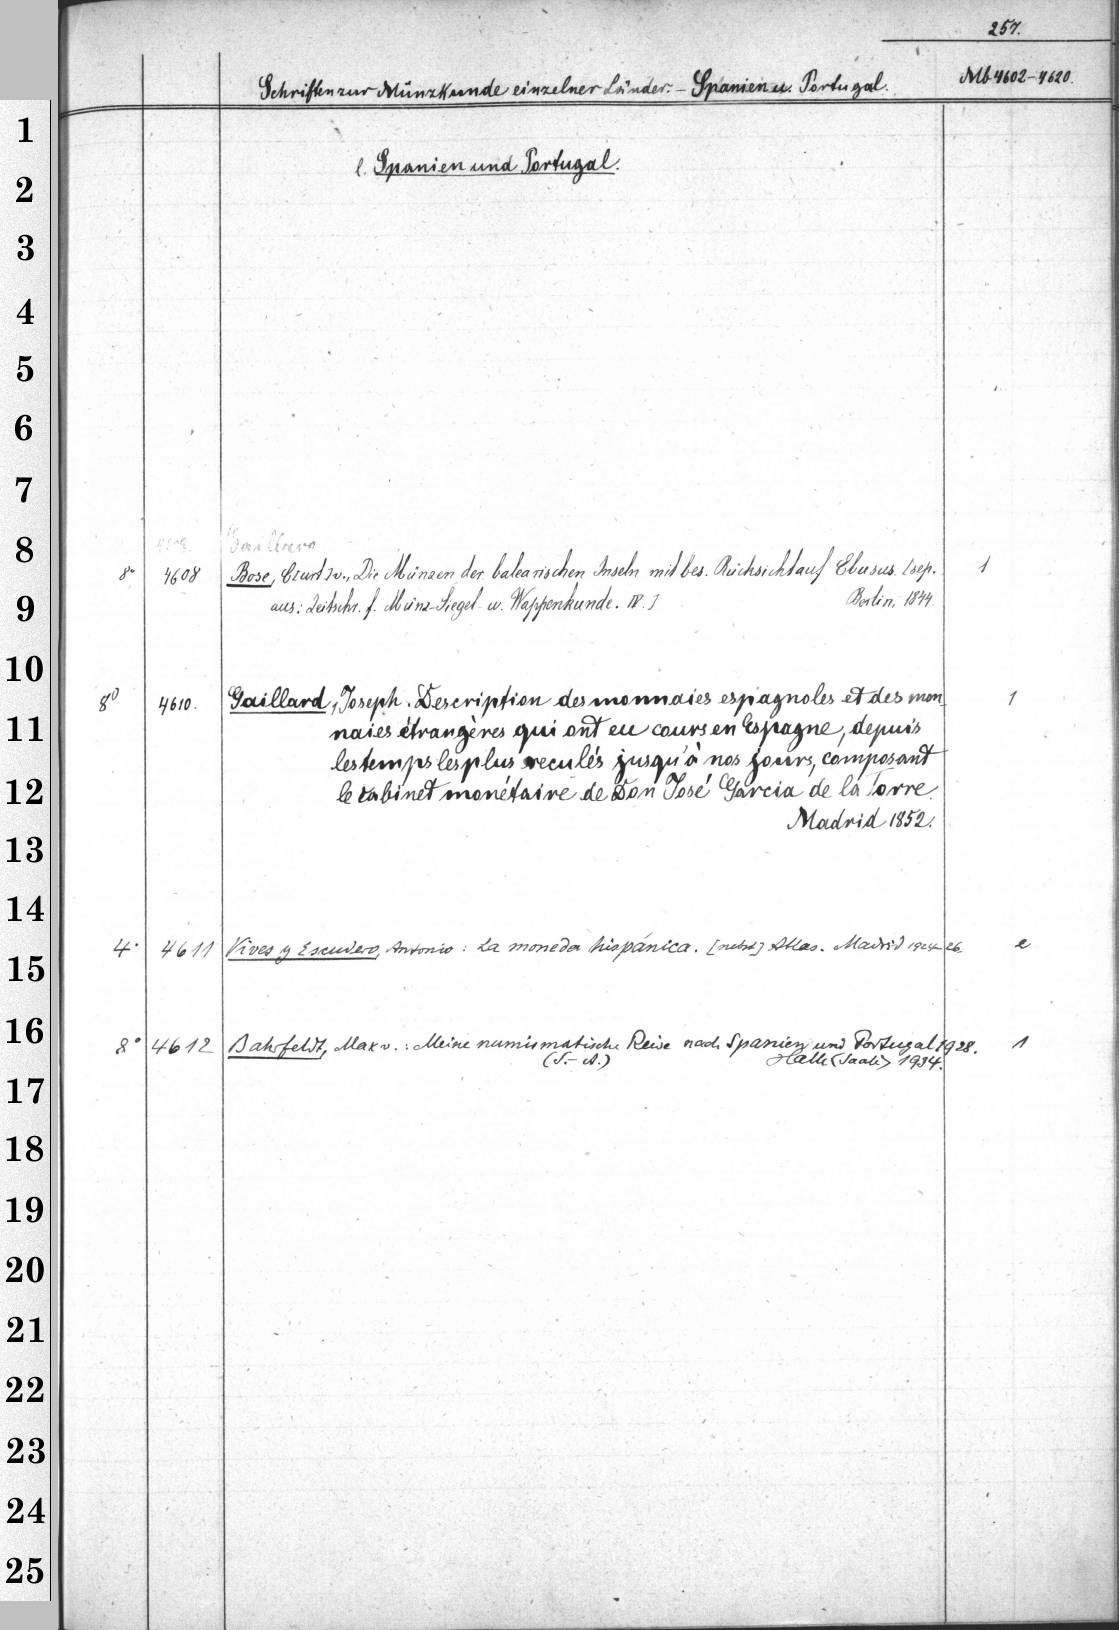 257.
Schriften zur Münzkunde einzelner Länder. – Spanien u. Portugal. Mb 4602–4620.
l. Spanien und Portugal.
8° 4608 Bose, C[urt] v., Die Münzen der balearischen Inseln mit bes. Rücksicht auf Ebusus. [sep. 1
aus: Zeitschr. f. Münz- Siegel- u. Wappenkunde. IV.] Berlin, 1844.
8° 4610. Gaillard, Joseph. Description des monnaies espagnoles et des mon- 1
naies étrangères qui ont eu cours en Espagne, depuis
les temps les plus reculés jusqu'à nos jours, composant
le cabinet monétaire de Don José Garcia de la Torre.
Madrid 1852.
4° 4611 Vives y Escudero, Antonio: La moneda hispánica. [nebst] Atlas. Madrid 1924–26. 2
8° 4612 Bahrfeldt, Max v.: Meine numismatische Reise nach Spanien und Portugal 1928. 1
(S.-A.) Halle (Saale) 1934.
1
2
3
4
5
6
7
8
9
10
11
12
13
14
15
16
17
18
19
20
21
22
23
24
25